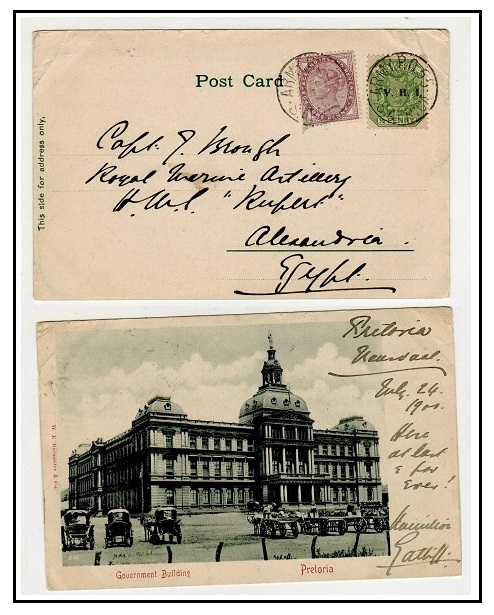 Post Card
This side for address only.
V. R. I.
½ PENNY
Capt. J Brough
Royal Marine Artillery
H.M.S. "Rupert"
Alexandria.
Egypt.
Pretoria
Transvaal.
July 24
1900.
Here
at last
& for
ever!
Hamilton
Gatliff.
Government Building
Pretoria